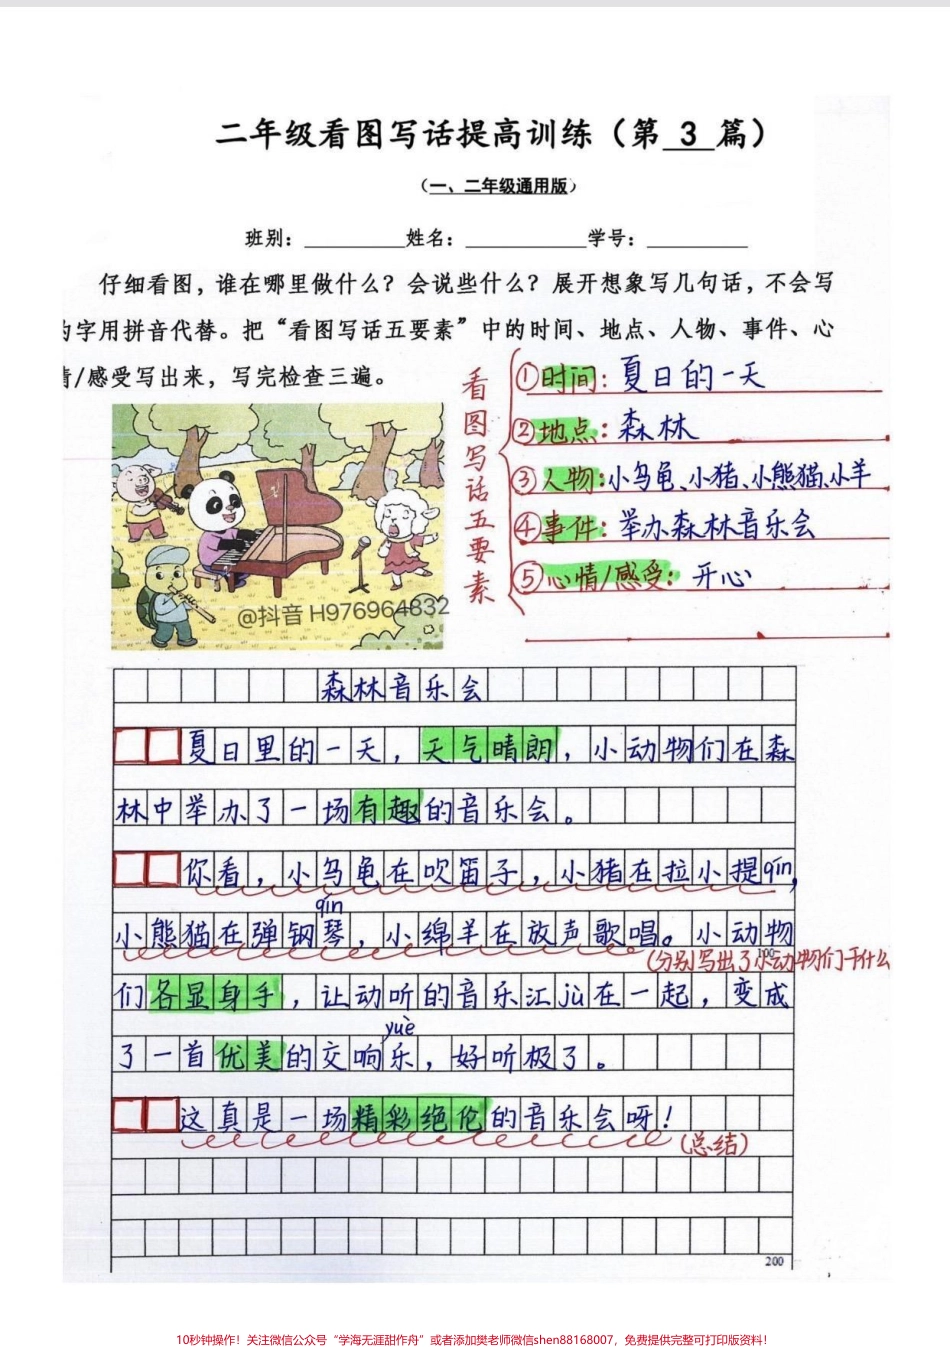 二年级看图写话提高训练（第 3 篇）
（一、二年级通用版）
班别：__________姓名：____________学号：__________
仔细看图，谁在哪里做什么？会说些什么？展开想象写几句话，不会写
的字用拼音代替。把“看图写话五要素”中的时间、地点、人物、事件、心
情/感受写出来，写完检查三遍。
看图写话五要素
①时间：夏日的一天
②地点：森林
③人物：小乌龟、小猪、小熊猫、小羊
④事件：举办森林音乐会
⑤心情/感受：开心
@抖音 H976964832
森林音乐会
夏日里的一天，天气晴朗，小动物们在森
林中举办了一场有趣的音乐会。
你看，小乌龟在吹笛子，小猪在拉小提qín，
qín
小熊猫在弹钢琴，小绵羊在放声歌唱。小动物
100
（分别写出了小动物们干什么
们各显身手，让动听的音乐汇jù在一起，变成
yuè
了一首优美的交响乐，好听极了。
这真是一场精彩绝伦的音乐会呀！
（总结）
200
10秒钟操作！关注微信公众号“学海无涯甜作舟”或者添加樊老师微信shen88168007，免费提供完整可打印版资料！